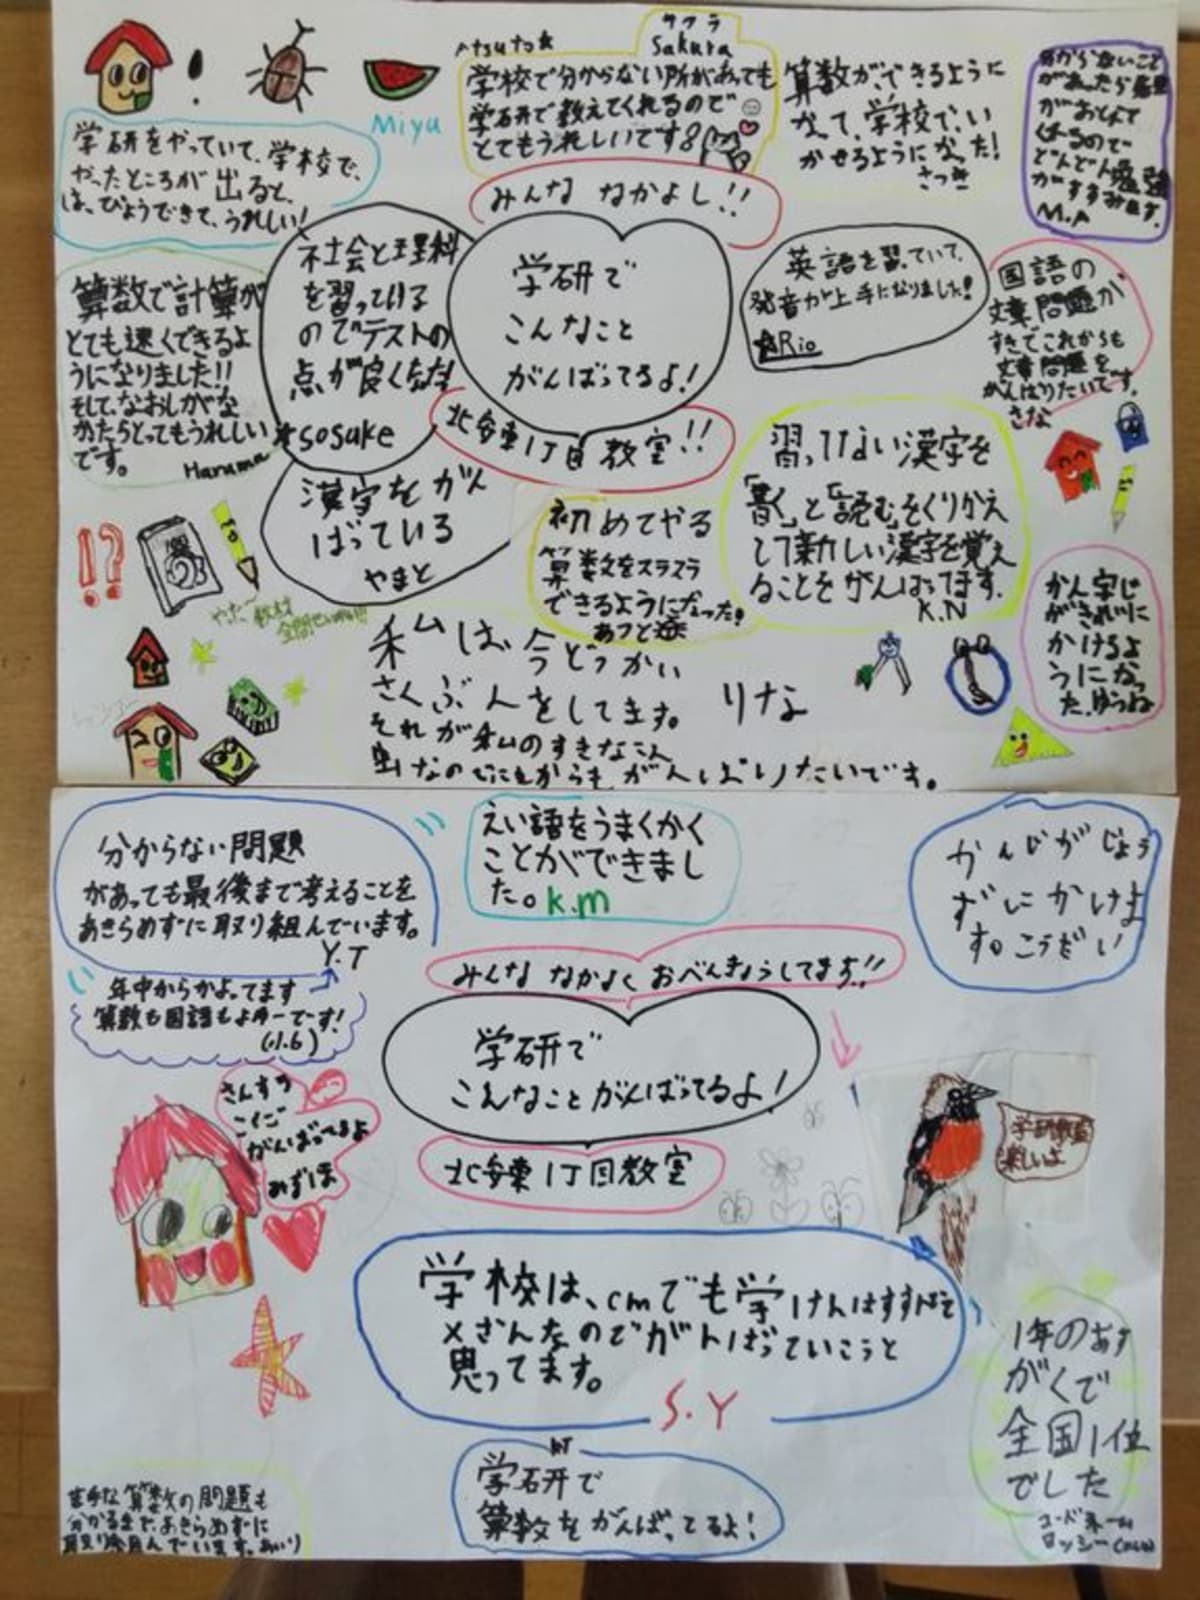 Miyu
学研をやっていて、学校で、
やったところが出ると、
は、ぴょうできて、うれしい!
Atsuto
サクラ
Sakura
学校で分からない所があっても
学研で教えてくれるので
とてもうれしいです
算数ができるように
なって、学校で、い
かせるようになった!
さつき
分からないこと
があったら
がおしえて
くれるので
どんどん勉強
がすすみます。
M.A
みんな なかよし!!
算数で計算が
とても速くできるよ
うになりました!!
そして、なおしがな
かったらとってもうれしい
です。
Haruma
社会と理科
を習っている
のでテストの
点が良くなった
sosuke
学研で
こんなこと
がんばってるよ!
英語を習っていて、
発音が上手になりました!
Rio
国語の
文章問題が
すきでこれからも
文章問題を
がんばりたいです。
さな
北安東1丁目教室!!
漢字をがん
ばっている
やまと
初めてやる
算数をスラスラ
できるようになった!
あつと
習ってない漢字を
「書く」と「読む」をくりかえ
して新しい漢字を覚え
ることをがんばってます。
K.N
かん字じ
がきれいに
かけるよ
うになっ
た。ゆうね
!?
やった 教材
私は今どっかい
さくぶんをしてます。
りな
それが私のすきな
なのでこれからもがんばりたいです。
分からない問題
があっても最後まで考えることを
あきらめずに取り組んでいます。
Y.T
えい語をうまくかく
ことができまし
た。k.m
かんじがじょう
ずにかけま
す。こうだい
年中からかよってます
算数も国語もよゆーでーす!
みんな なかよく おべんきょうしてます!!
学研で
こんなことがんばってるよ!
北安東1丁目教室
さんすう
こくご
がんばってるよ
みずほ
学研教室
楽しいよ
学校は、cmでも学けんはすすんで
×ざんなのでがんばっていこうと
思ってます。
S.Y
1年のあす
がくで
全国1位
でした
コードネーム
ロッシー
学研で
算数をがんばってるよ!
苦手な算数の問題も
分かるまで、あきらめずに
取り組んでいます。あいり